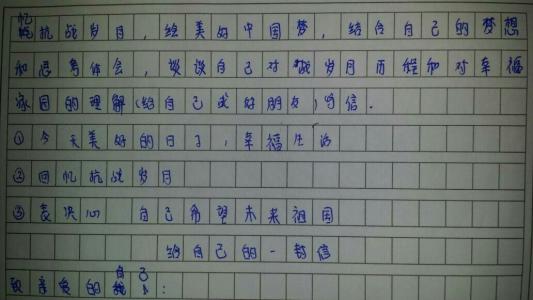 忆抗战岁月，绘美好中国梦，结合自己的梦想
和思考体会，谈谈自己对战岁月历程和对幸福
家园的理解(给自己或好朋友)写信.
①今天美好的日子，幸福生活
②回忆抗战岁月
③表决心 自己希望未来祖国
给自己的一封信
致亲爱的自己：